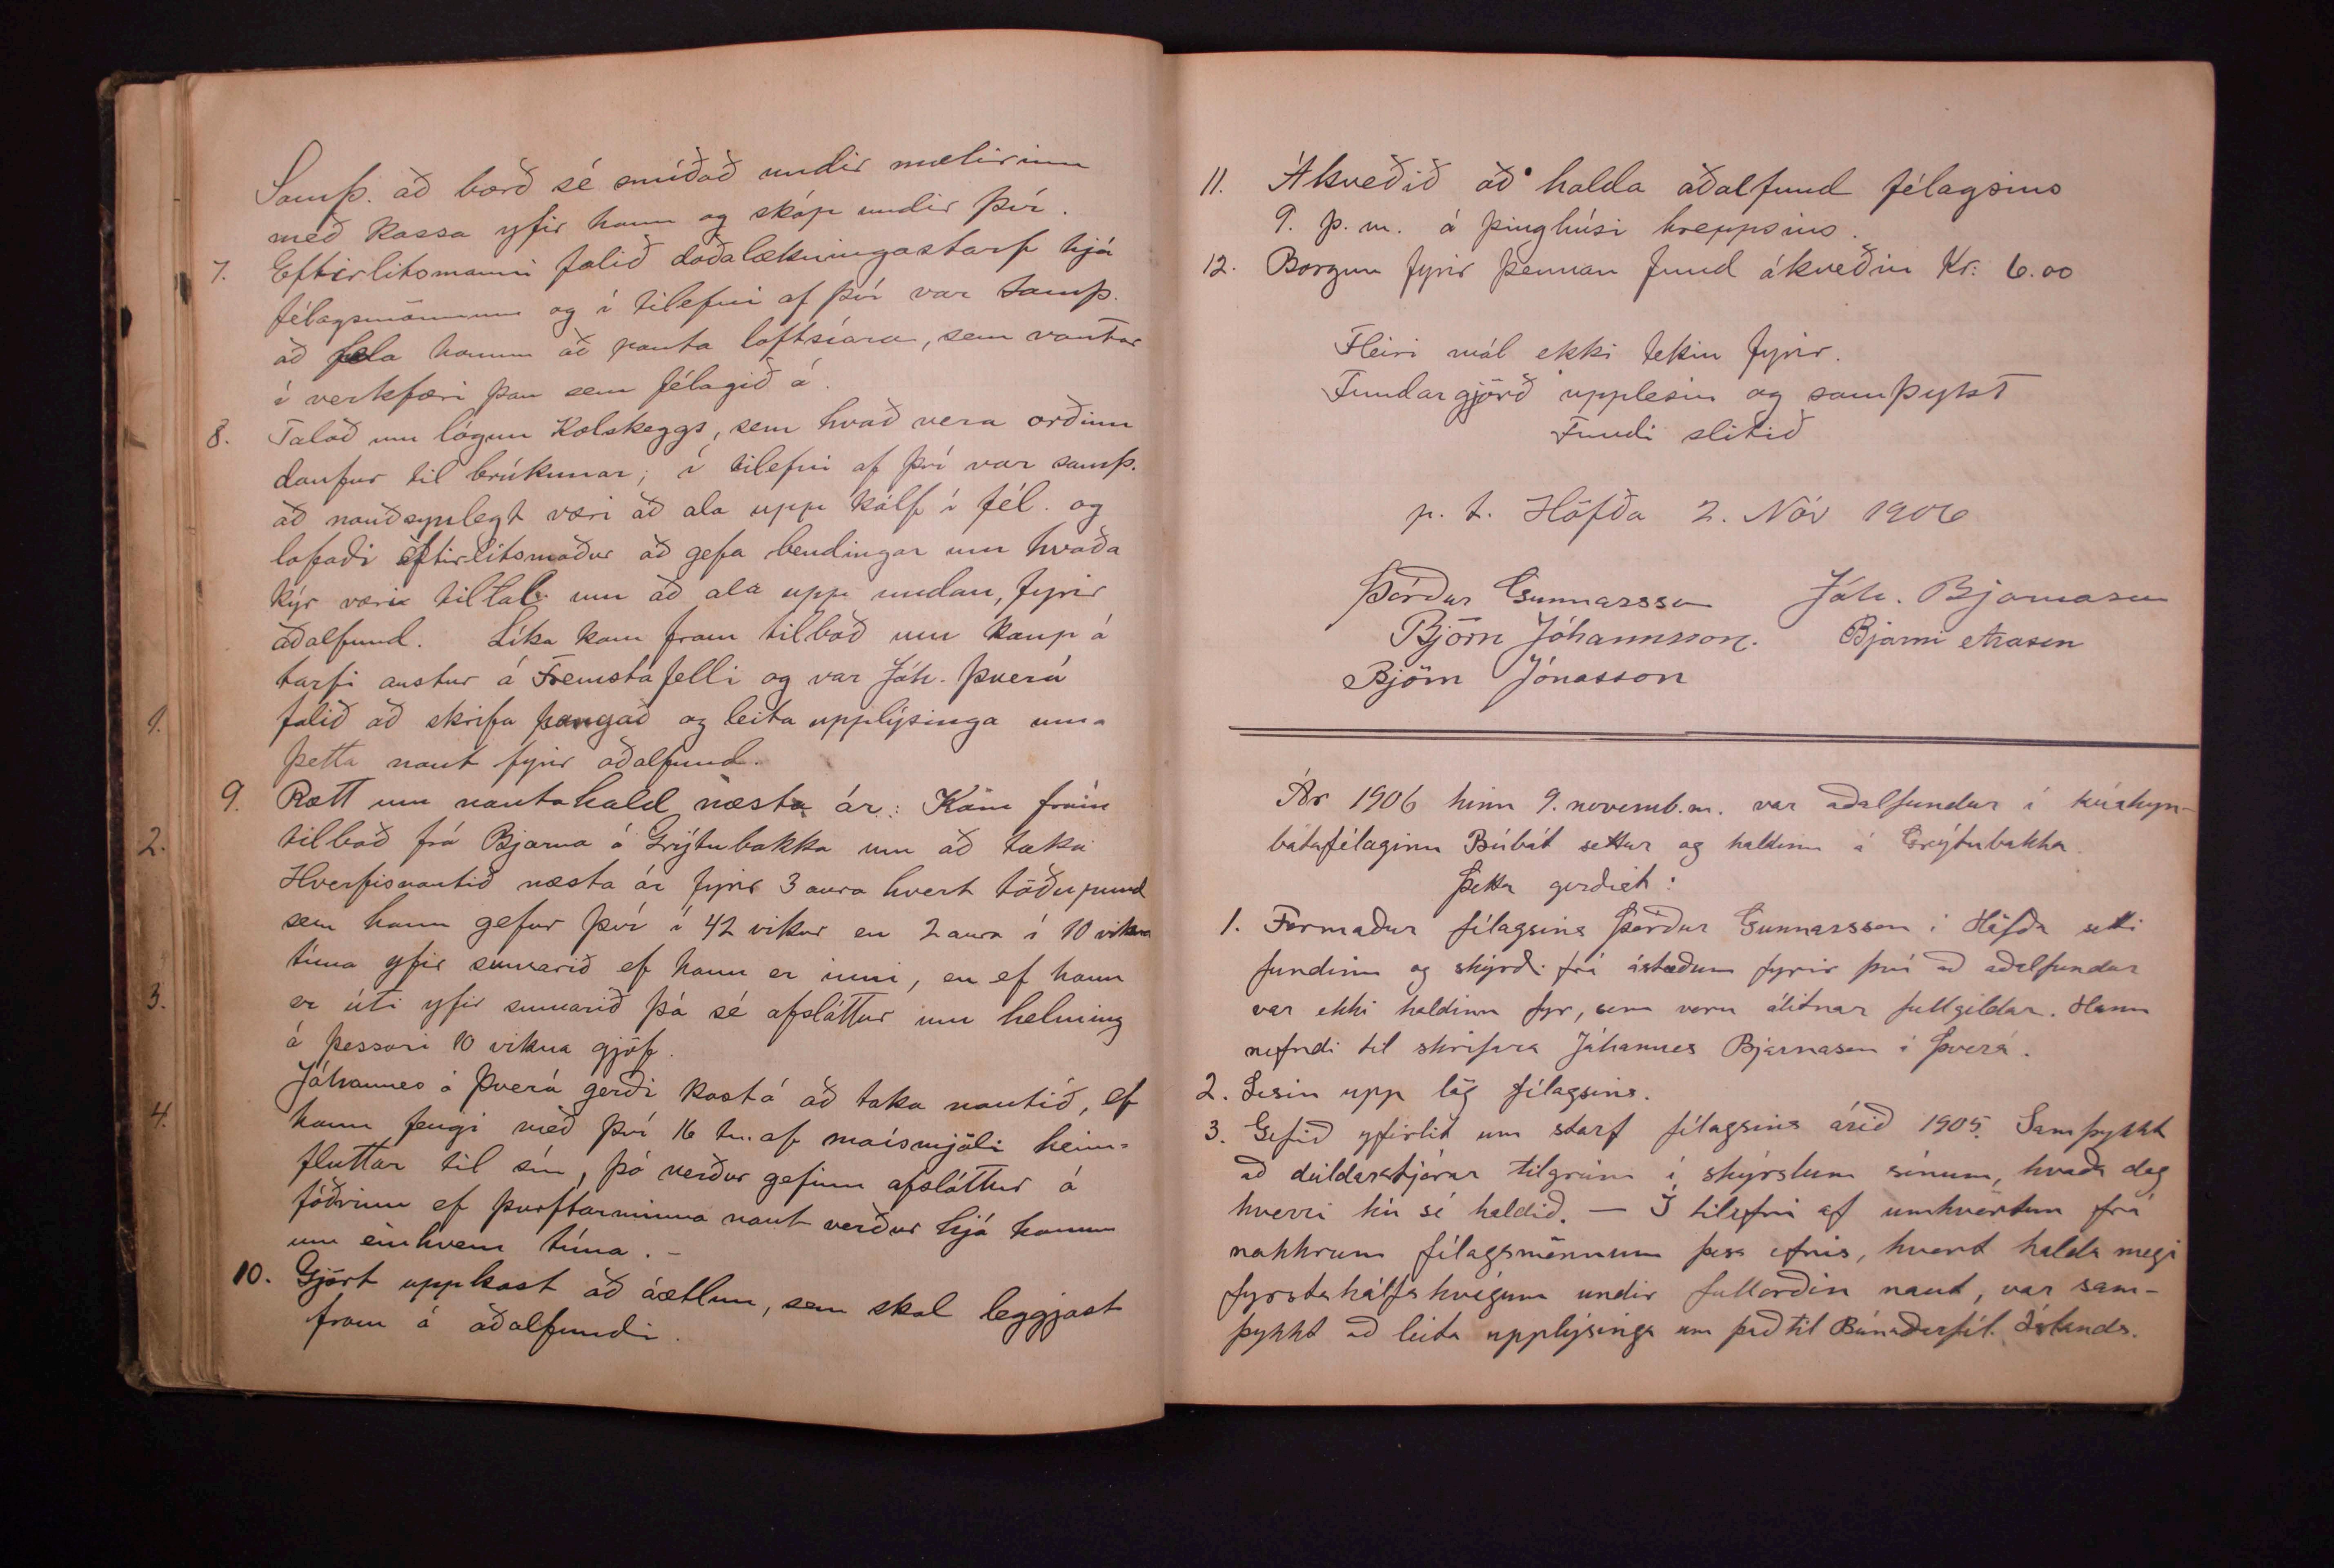 Samþ. að borð sé smíðað undir mælirinn
með kassa yfir hann og skáp undir því.
7. Eftirlitsmanni falið doðalækningastarf hjá
félagsmönnum og í tilefni af því var samþ.
að fela honum að panta loftsíara, sem vantar
í verkfæri þau sem félagið á.
8. Talað um lógun Kolskeggs, sem kvað vera orðinn
daufur til brúkunar; í tilefni af því var samþ.
að nauðsynlegt væri að ala upp kálf í fél. og
lofaði eftirlitsmaður að gefa bendingar um hvaða
kýr væri tiltal um að ala upp undan, fyrir
aðalfund. Líka kom fram tilboð um kaup á
tarfi austur á Fremstafelli og var Jóh. Þverá
falið að skrifa þangað og leita upplýsinga um
þetta naut fyrir aðalfund.
9. Rætt um nautahald næsta ár: Kom fram
tilboð frá Bjarna á Grýtubakka um að taka
Hverfisnautið næsta ár fyrir 3 aura hvert töðupund
sem hann gefur því í 42 vikur en 2 aura í 10 vikna
tíma yfir sumarið ef hann er inni, en ef hann
er úti yfir sumarið þá sé afsláttur um helming
á þessari 10 vikna gjöf.
Jóhannes á Þverá gerði kost á að taka nautið, ef
hann fengi með því 16 tn. af maismjöli heim-
fluttar til sín, þó verður gefinn afsláttur á
fóðrinu ef þurftarminna naut verður hjá honum
um einhvern tíma. -
10. Gjört uppkast að áætlun, sem skal leggjast
fram á aðalfundi.
1.
2.
3.
4.
11. Ákveðið að halda aðalfund félagsins
9. þ. m. á þinghúsi hreppsins.
12. Borgun fyrir þennan fund ákveðin Kr: 6.00
Fleiri mál ekki tekin fyrir.
Fundargjörð upplesin og samþykt
Fundi slitið
p. t. Höfða 2. Nóv 1906
Þórður Gunnarsson Jóh. Bjarnason
Björn Jóhannsson. Bjarni Arason
Björn Jónasson
Ár 1906 hinn 9. novemb.m. var aðalfundur í kúakyn-
bótafélaginu Búbót settur og haldinn á Grýtubakka.
Þetta gerðist:
1. Formaður félagsins Þórður Gunnarsson í Höfða setti
fundinn og skýrði frá ástæðum fyrir því að aðalfundur
var ekki haldinn fyr, sem voru álitnar fullgildar. Hann
nefndi til skrifara Jóhannes Bjarnason í Þverá.
2. Lesin upp lög félagsins.
3. Gefið yfirlit um starf félagsins árið 1905. Samþykkt
að deildarstjórar tilgreini í skýrslum sínum, hvaða dag
hverri kú sé haldið. — Í tilefni af umkvörtun frá
nokkrum félagsmönnum þess efnis, hvort halda megi
fyrstakálfs kvígum undir fullorðin naut, var sam-
þykkt að leita upplýsinga um það til Búnaðarfél. Íslands.